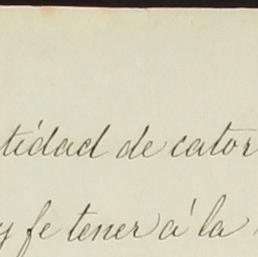 tidad de cator
y fe tener á la